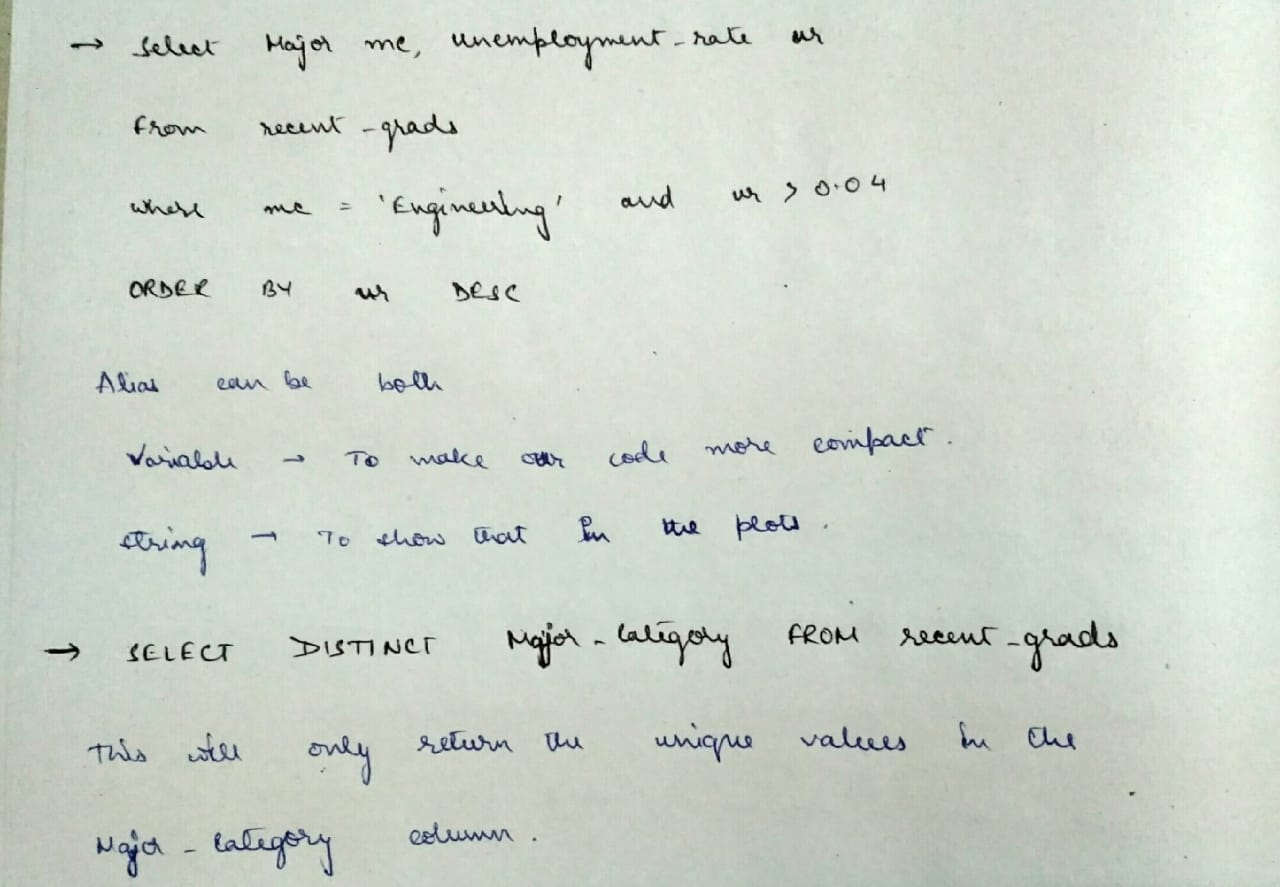 → Select Major mc, unemployment_rate ur
from recent_grads
where mc = 'Engineering' and ur > 0.04
ORDER BY ur DESC
Alias can be both
Variable → To make our code more compact.
string → To show that in the plots.
→ SELECT DISTINCT Major_Category FROM recent_grads
This will only return the unique values in the
Major_Category column.